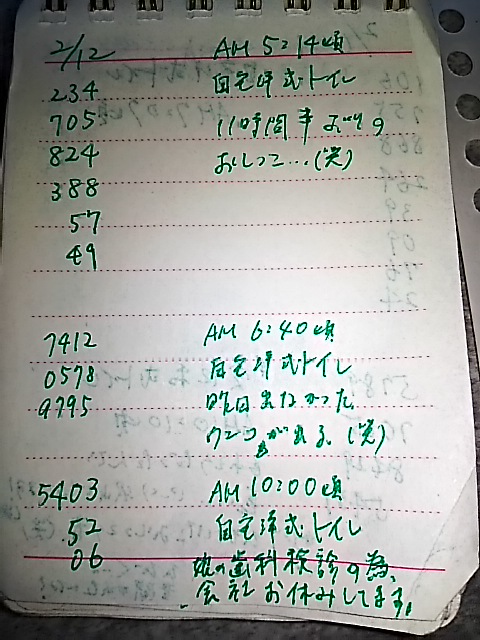 2/12 AM 5:14頃
234 自宅洋式トイレ
705 11時間半お叶の
824 おしっこ…(笑)
388
57
49
7412 AM 6:40頃
0578 自宅洋式トイレ
9795 昨日出なかった
ウンコが出る。(笑)
5403 AM 10:00頃
52 自宅洋式トイレ
06 娘の歯科検診の為、
会社お休みしてます。